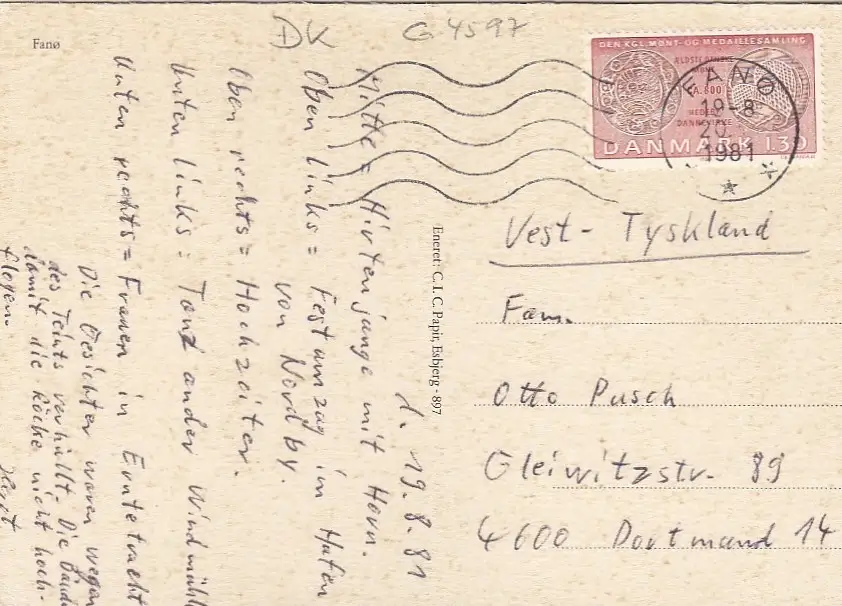 Fanø
DK
G 4597
DEN KGL. MØNT- OG MEDAILLESAMLING
ÆLDSTE DANSKE
MØNT
CA. 800
HEDEBY
DANNEVIRKE
DANMARK 1.30
FANØ
19-8
20.
1981
1. 19.8.81
Mitte = Hirtenjunge mit Horn.
Oben links = Festumzug im Hafen
von Nordby.
Oben rechts = Hochzeiter.
Unten links = Tanz an der Windmühl
Unten rechts = Frauen in Erntetracht
Die Gesichter waren wegen
des Teints verhüllt. Die Bänd
damit die Röcke nicht hoch-
flogen.
Horst
Eneret: C.L.C. Papir, Esbjerg - 897
Vest - Tyskland
Fam.
Otto Pusch
Gleiwitzstr. 89
4600 Dortmund 14